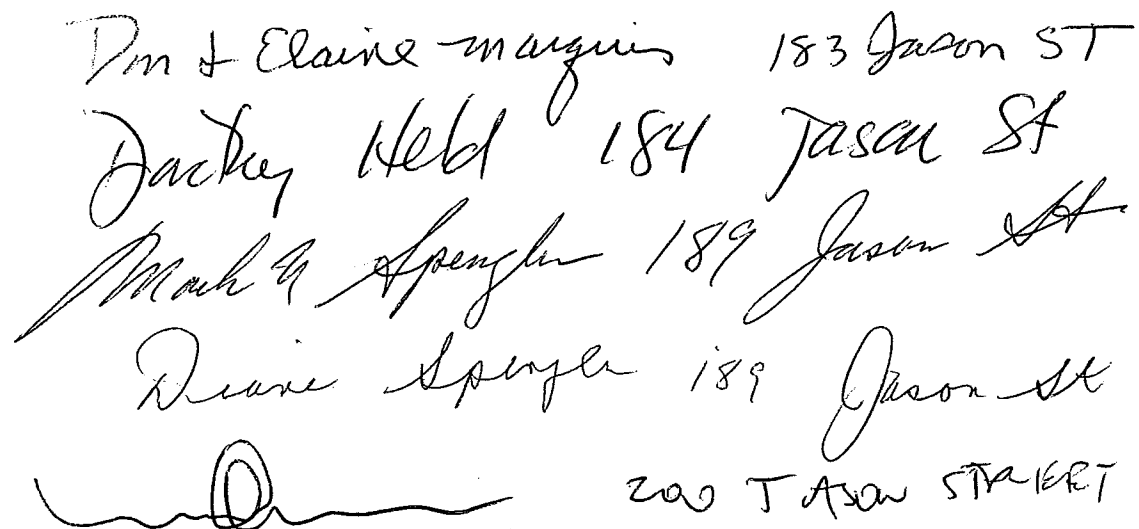 Don & Elaine Marquis 183 Jason ST
Held 184 Jason St
Mark Spengler 189 Jason St
Diane Spengler 189 Jason St
200 JASON STREET